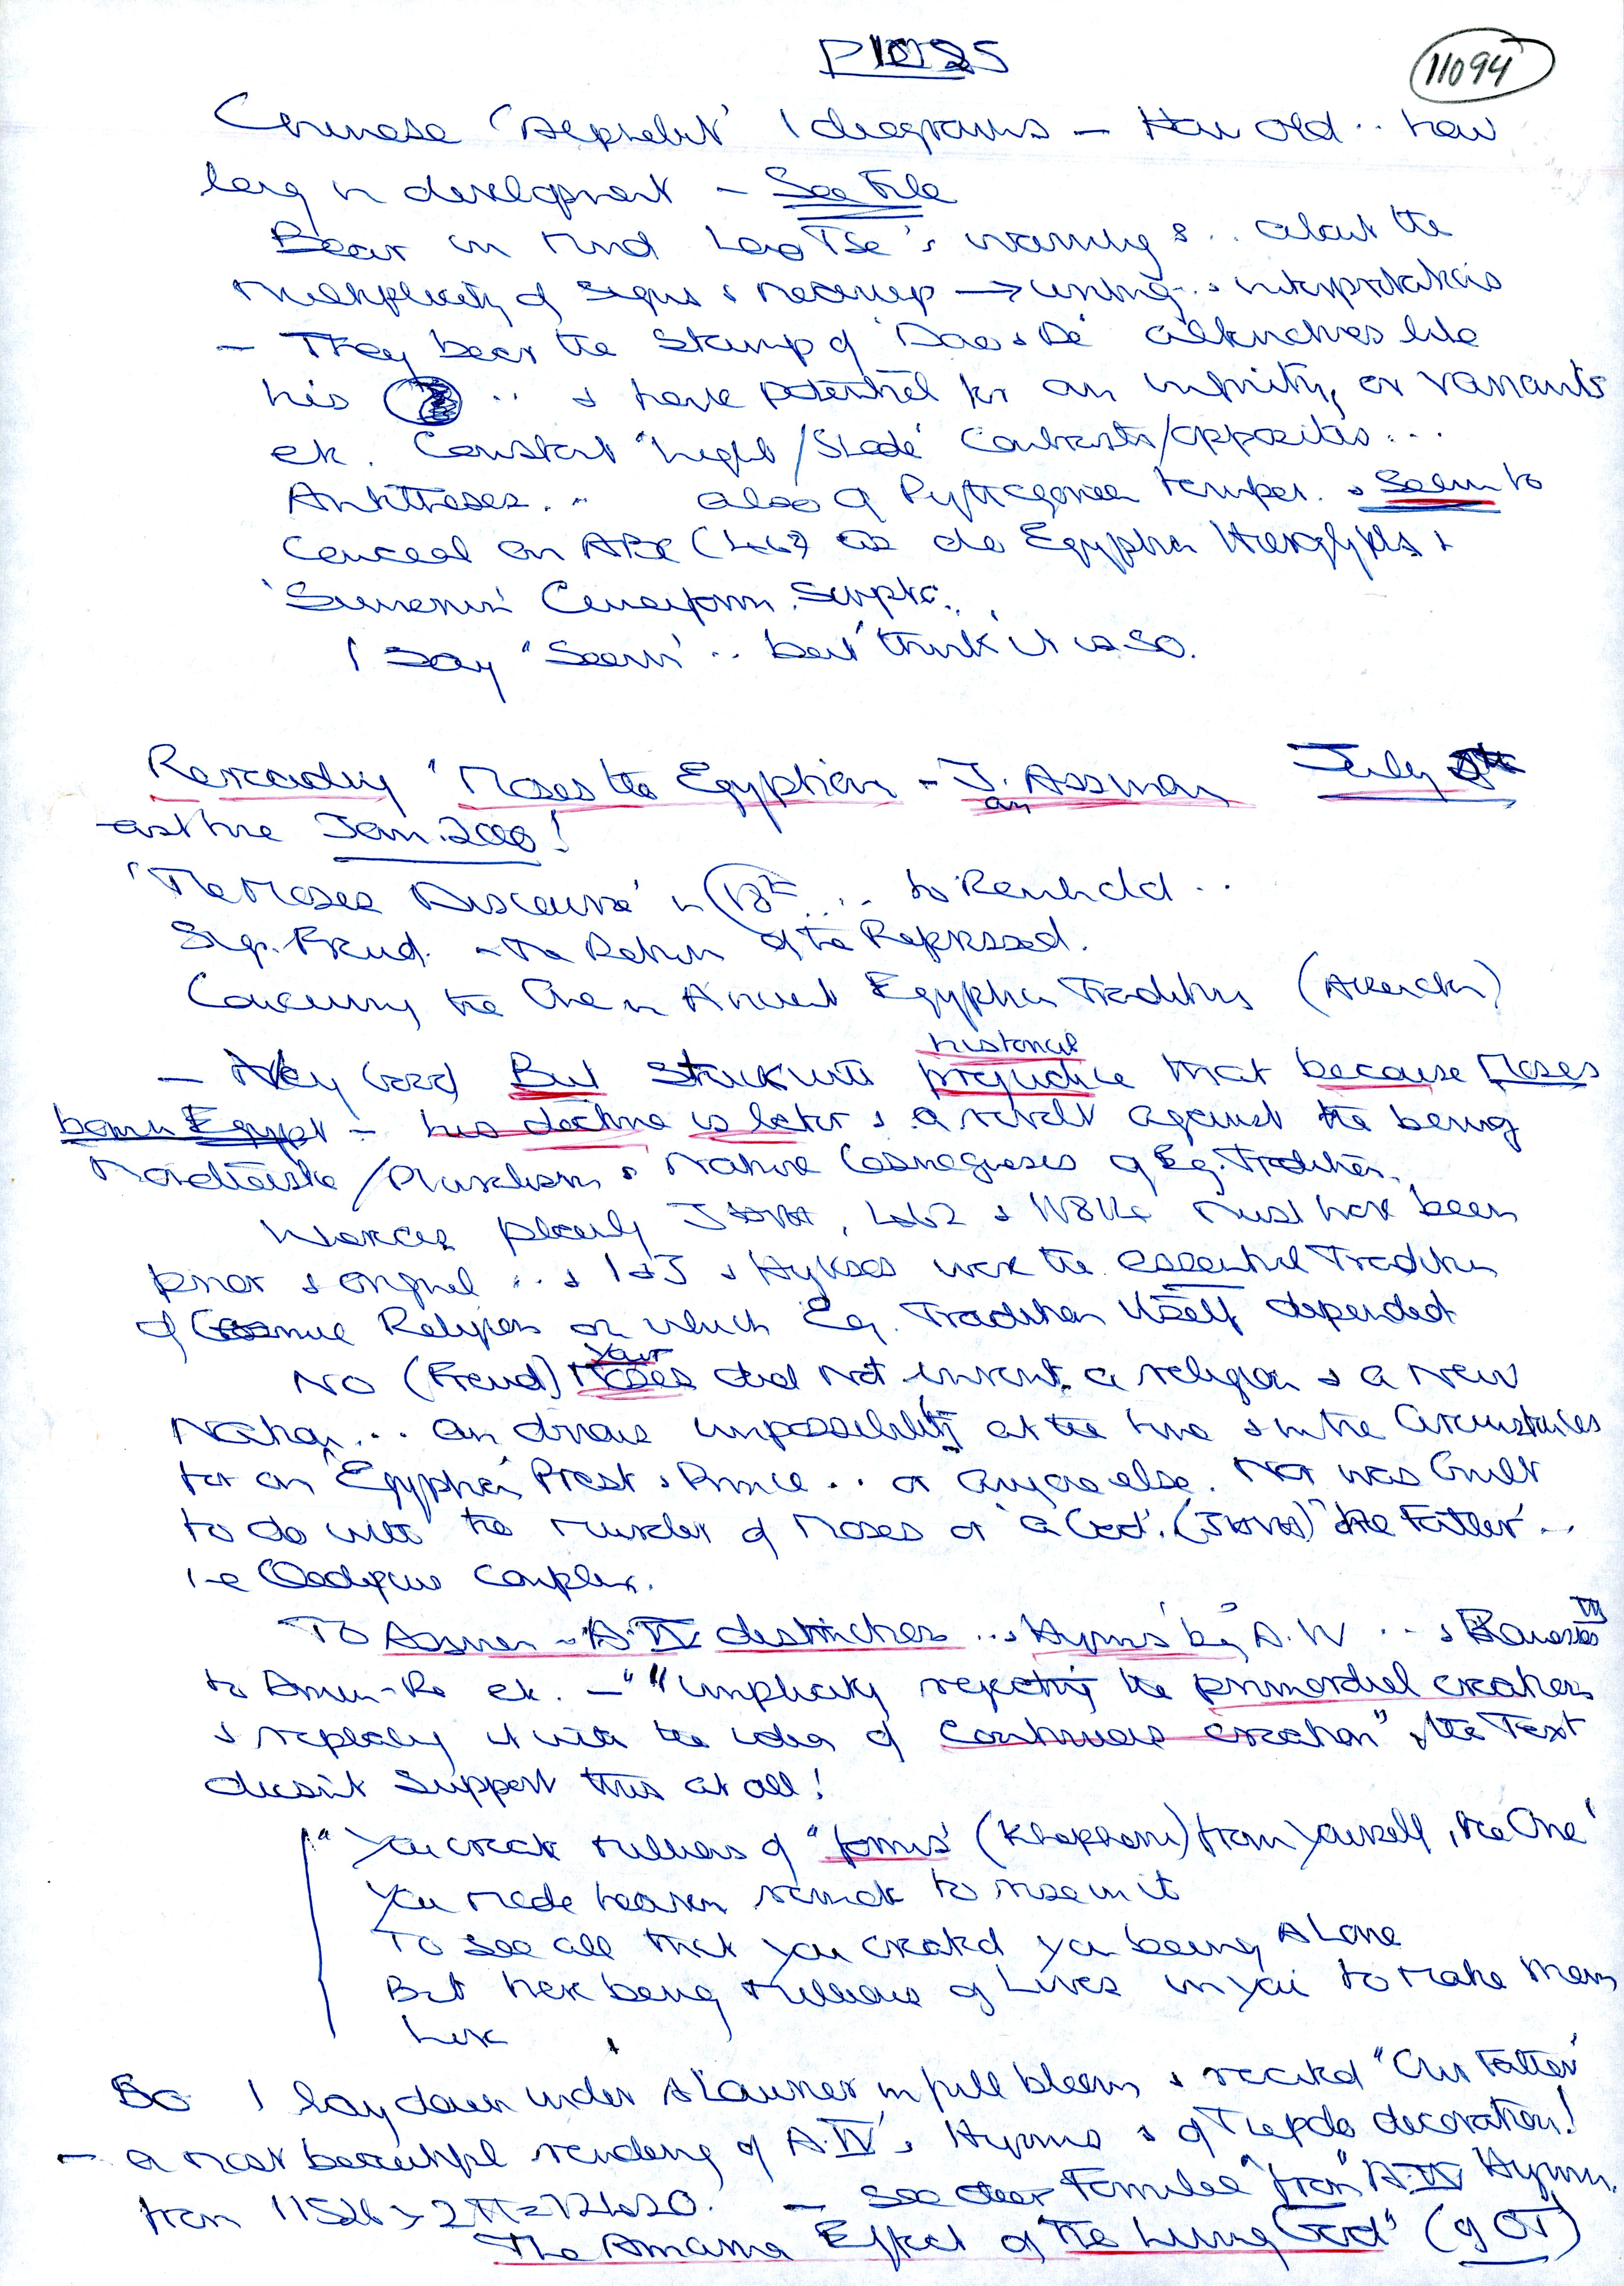 P1025
11094
Chinese 'Alphabet' Ideograms – How old .. how
long in development – See File
Bear in mind Lao Tse's warnings .. about the
multiplicity of signs & meanings → &  interpretations
– They bear the stamp of 'Dao & De' alternatives like
his .. & have potential for an infinity of variants
etc. Constant 'Light/Shade' Contrasts/opposites ...
Antitheses .. also of Pythagorean temper. & Seem to
Conceal an ABC as do Egyptian Hieroglyphs &
'Sumerian' Cuneiform Scripts..
I say 'Seem' .. but 'think' it is so.
Rereading 'Moses the Egyptian – J. Assman July
an
last time Jan. 2000!
'The Moses Discourse' in 18th .... to Reinhold ..
Sig. Freud. – The Return of the Repressed.
Concerning the One in Ancient Egyptian Traditions
historical
– Very good But Stuck with prejudice that because Moses
born Egypt – his doctrine is later & a revolt against the being
/Pluralism & Nature Cosmogneses of Eg. Tradition.
Whereas plainly & must have been
prior & original .. & & Hyksos were the essential Tradition
of Cosmic Religion on which Eg. Tradition itself depended
your
No (Freud) Moses did not invent a religion & a new
Nation... an obvious impossibility at the time & in the Circumstances
for an 'Egyptian' Priest & Prince .. or anyone else. Nor was Guilt
to do with the murder of Moses or 'a God'. 'the Father' ..
i.e Oedipus Complex.
To Assman – A.IV distinction ... Hymns by A.IV ... & Rameses
to Amun-Re etc. – "implicitly rejecting the primordial creation
& replacing it with the idea of continuous creation" the Text
doesn't Support this at all!
"You create millions of "forms' from yourself, the One'
You made heaven remote to rise in it
To see all that you created you being Alone
But there being millions of Lives in you to make them
Live
So I lay down under in full bloom & recited "Our Father'
– a most beautiful rendering of A.IV's Hymns & of Tiepolo decoration!
from – See other Formulae "from" A.IV Hymn.
The Amarna Effect of "the Living God" (of OT)